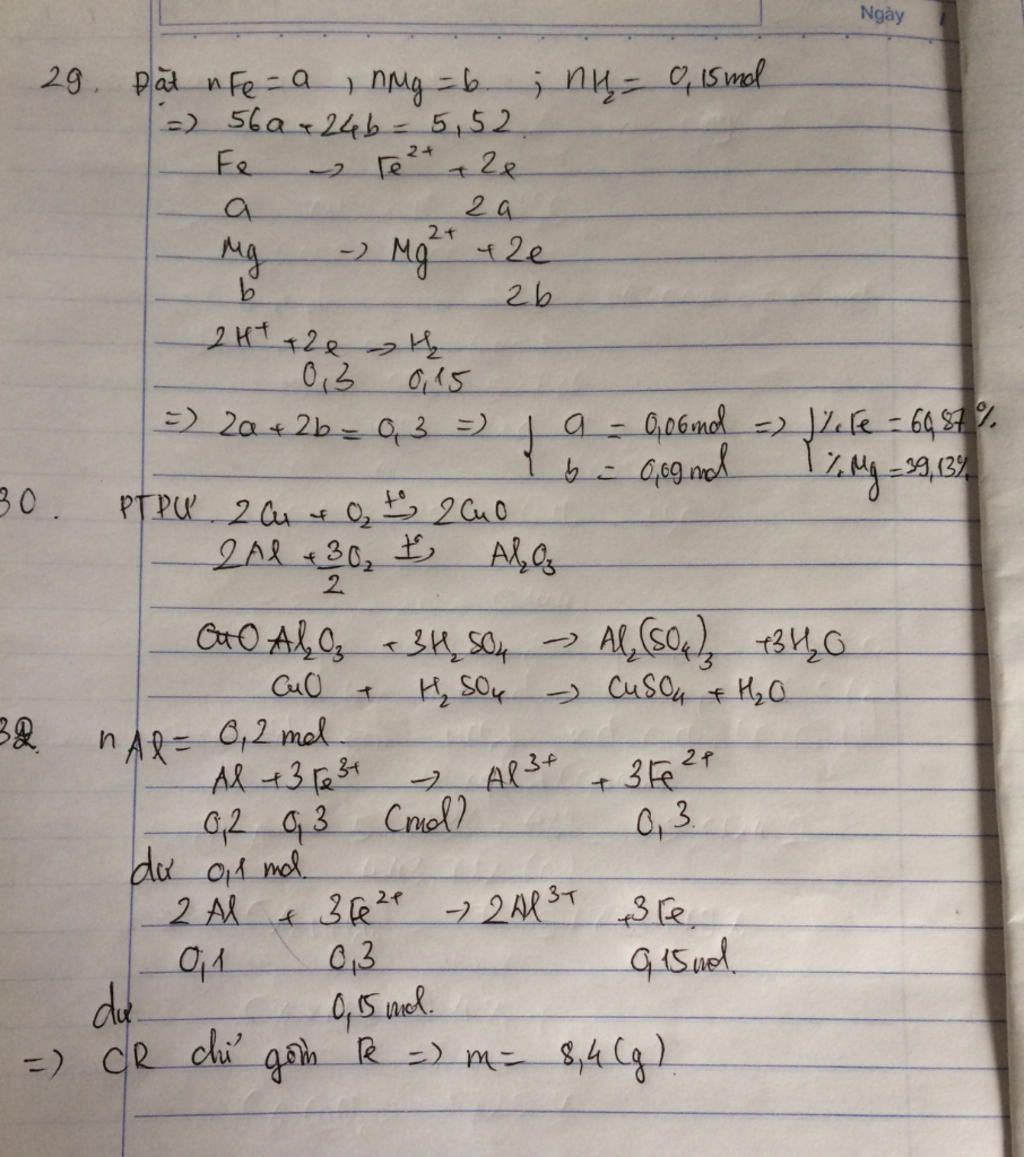 Ngày
29. Đặt nFe = a, nMg = b ; nH₂ = 0,15 mol
=> 56a + 24b = 5,52
Fe → Fe²⁺ + 2e
a 2a
Mg → Mg²⁺ + 2e
b 2b
2H⁺ + 2e → H₂
0,3 0,15
=> 2a + 2b = 0,3 => { a = 0,06 mol => { % Fe = 60,87%
b = 0,09 mol % Mg = 39,13%
30. PTPƯ 2Cu + O₂ t°→ 2CuO
2Al + 3/2 O₂ t°→ Al₂O₃
Al₂O₃ + 3H₂SO₄ → Al₂(SO₄)₃ + 3H₂O
CuO + H₂SO₄ → CuSO₄ + H₂O
32. nAl = 0,2 mol.
Al + 3Fe³⁺ → Al³⁺ + 3Fe²⁺
0,2 0,3 (mol) 0,3
dư 0,1 mol.
2Al + 3Fe²⁺ → 2Al³⁺ + 3Fe.
0,1 0,3 0,15 mol.
dư 0,15 mol.
=> CR chỉ gồm Fe => m = 8,4 (g)